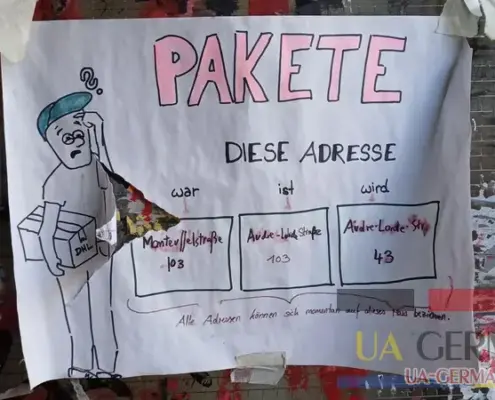 ??
PAKETE
DIESE ADRESSE
war ist wird
Manteuffelstraße 103
Audre-Lorde Straße 103
Audre-Lorde-Str. 43
DHL
Alle Adressen können sich momentan auf dieses Haus beziehen.
UA GERM
UA-GERMA